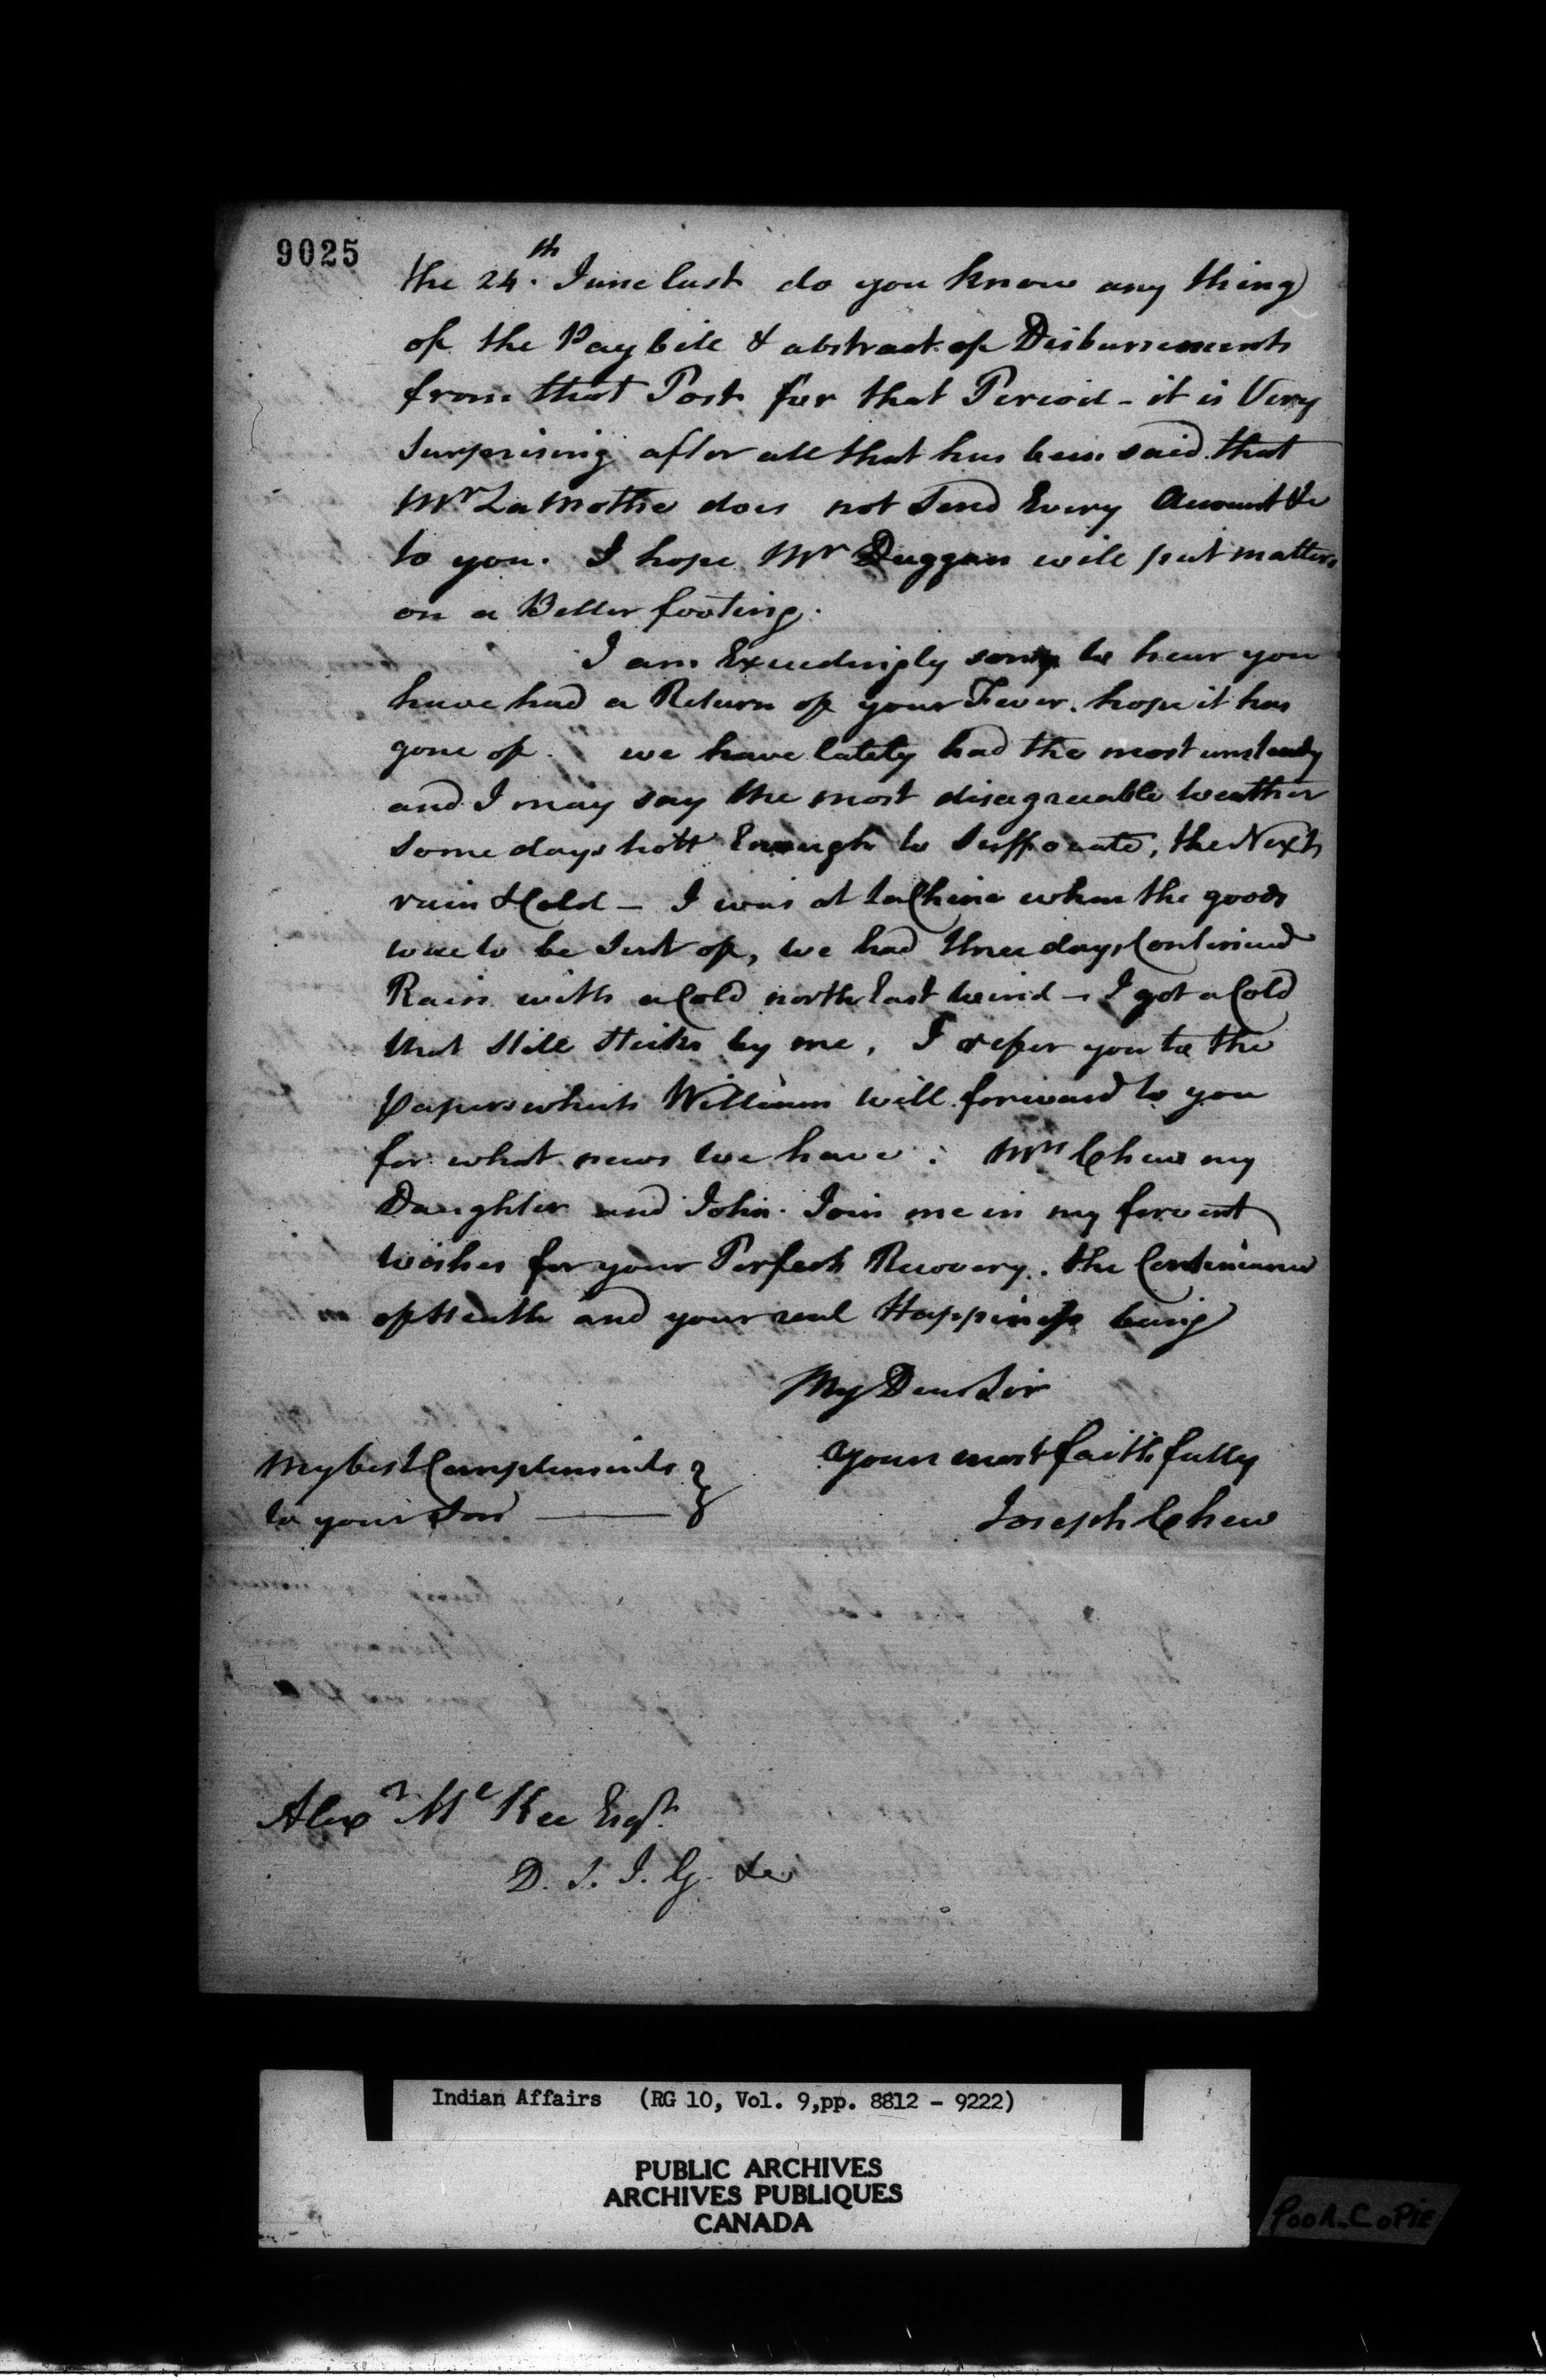 9025
the 24.th June last do you know any thing
of the Pay bill & abstract of Disbursements
from that Post for that Period - it is Very
Surprising after all that has been said that
Mr LaMothe does not Send Every Account &c
to you. I hope Mr Duggan will put matters
on a Better footing.
I am Exceedingly sorry to hear you
have had a Return of your Fever. hope it has
gone of. we have lately had the most unsteady
and I may say the most disagreeable weather
some days hott Enough to Suffocate, the Next
rain & Cold — I was at LaChine when the goods
were to be Sent of, we had three days Continued
Rain with a Cold north East wind — I got a Cold
that still sticks by me, I refer you to the
papers which William will forward to you
for what news we have. Mrs Chew my
Daughter and John Join me in my fervent
wishes for your Perfect Recovery. the Continuance
of Health and your real Happiness being
My Dear Sir
yours most faithfully
Joseph Chew
My best Compliments
to your Son
Alexr McKee Esqr.
D. S. I. G. &c
Indian Affairs (RG 10, Vol. 9,pp. 8812 - 9222)
PUBLIC ARCHIVES
ARCHIVES PUBLIQUES
CANADA
POOR COPIE